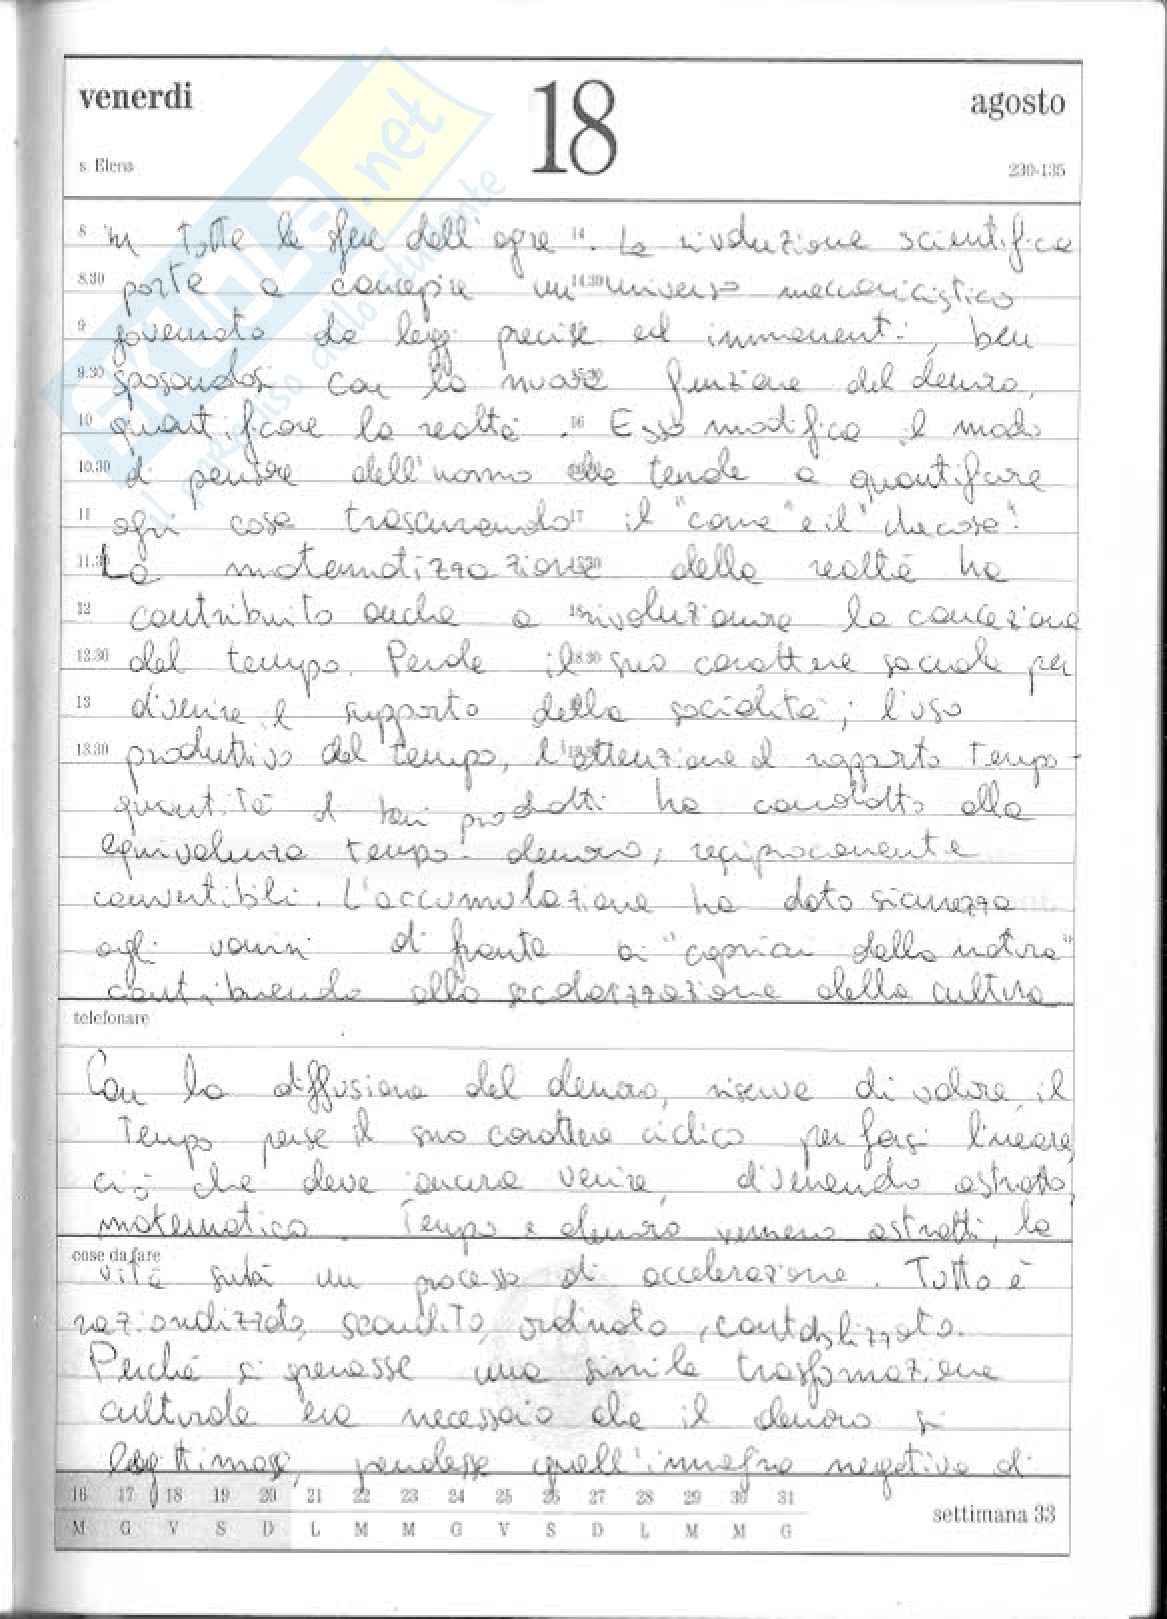 venerdi 18 agosto
s. Elena 230-135
8 in tutte le sfere dell'agire 14. La rivoluzione scientifica
8.30 porta a concepire un 14.30 universo meccanicistico
9 governato da leggi precise ed immanenti, ben
9.30 sposandosi con la nuova funzione del denaro,
10 quantificare la realtà. 16 Esso modifica il modo
10.30 di pensare dell'uomo che tende a quantificare
11 ogni cosa trascurando 17 il "come" e il "che cosa".
11.30 La matematizzazione della realtà ha
12 contribuito anche a 18 rivoluzionare la concezione
12.30 del tempo. Perde il 18.30 suo carattere sociale per
13 divenire il supporto della socialità; l'uso
13.30 produttivo del tempo, l'attenzione al rapporto tempo-
quantità di beni prodotti ha condotto alla
equivalenza tempo-denaro, reciprocamente
convertibili. L'accumulazione ha dato sicurezza
agli uomini di fronte ai "capricci della natura"
contribuendo alla secolarizzazione della cultura
telefonare
Con la diffusione del denaro, riserva di valore, il
tempo perse il suo carattere ciclico per farsi lineare,
ciò che deve ancora venire, divenendo astratto,
matematico. Tempo e denaro vennero astratti, la
cose da fare
vita subì un processo di accelerazione. Tutto è
razionalizzato, scandito, ordinato, contabilizzato.
Perché si generasse una simile trasformazione
culturale era necessaio che il denaro si
legittimasse, perdesse quell'immagine negativa di
16 17 18 19 20 21 22 23 24 25 26 27 28 29 30 31
M G V S D L M M G V S D L M M G
settimana 33
SKUOLA.net